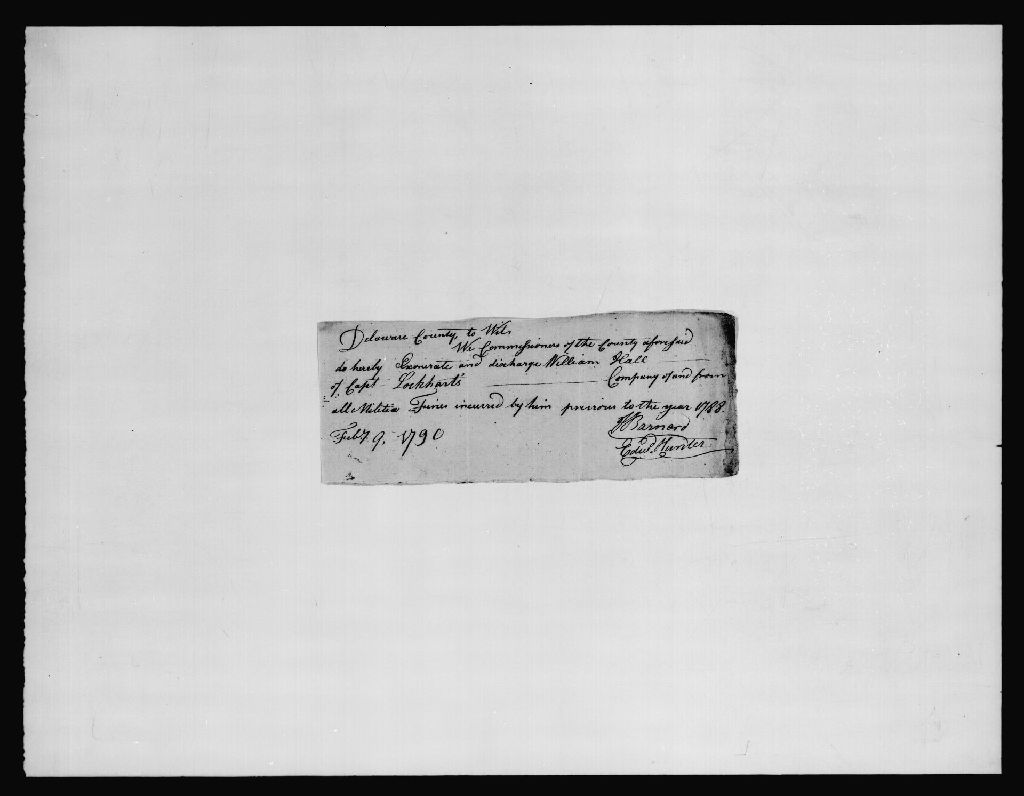 Delaware County to Wit,
We Commissioners of the County aforesaid
do hereby Exonerate and discharge William Hall
of Capt Lockharts Company of and from
all Militia Fines incurred by him previous to the year 1788.
Feby. 9. 1790
Barnard
Edwd. Hunter